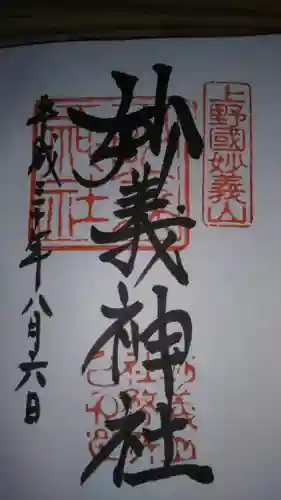 上野國妙義山
妙義神社
平成三十年八月六日